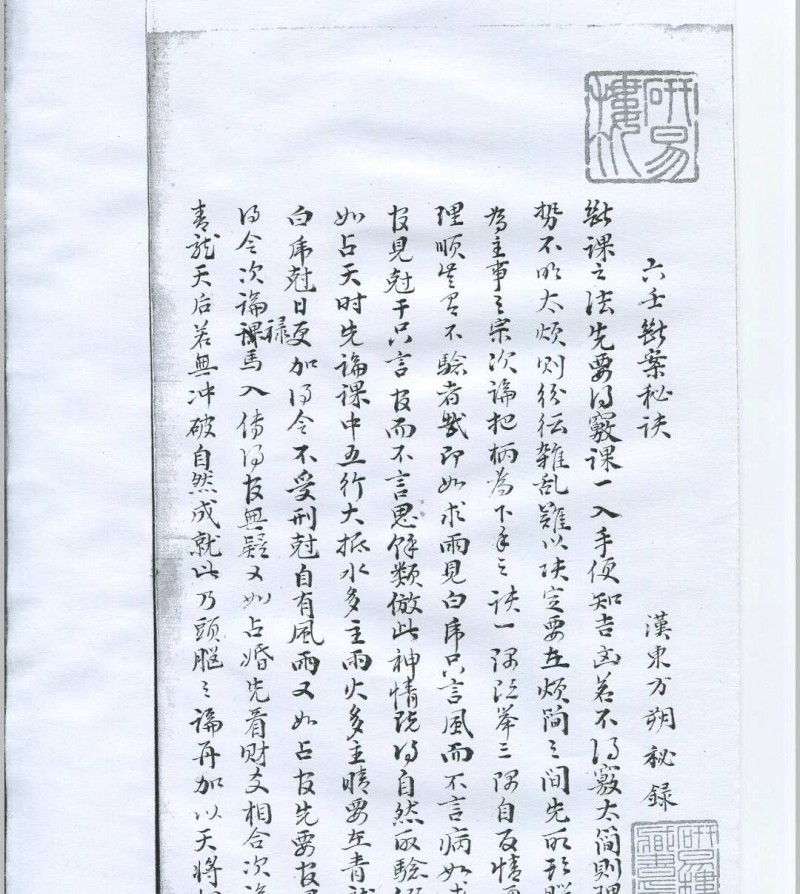 六壬斷案秘诀
漢東方朔秘録
斷課之法先要得竅課一入手便知吉凶若不得竅太简則理
势不明太烦则纷纭雜乱難以决定要在烦简之间先明頭腦
為主事之宗次論把柄為下手之诀一隅既举三隅自反情
理順
不驗者
即如求雨見白虎只言風而不言病如
官見尅干只言官而不言鬼餘類倣此神情既得自然取驗
如占天时先論課中五行大抵水多主雨火多主晴要在青龍
白虎尅日更加得令不受刑尅自有風雨又如占官先要官
得令次論禄馬入傳得官無疑又如占婚先看财爻相合次論
青龍天后若無冲破自然成就此乃頭腦之論再加以天將
研易樓